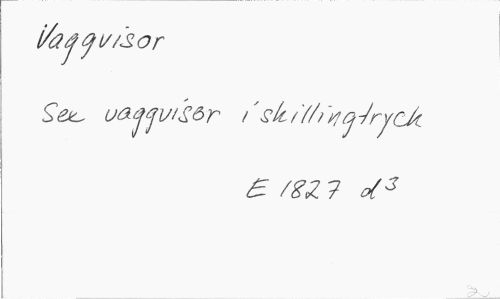 Vaggvisor
Sex vaggvisor i skillingtryck
E 1827 d³